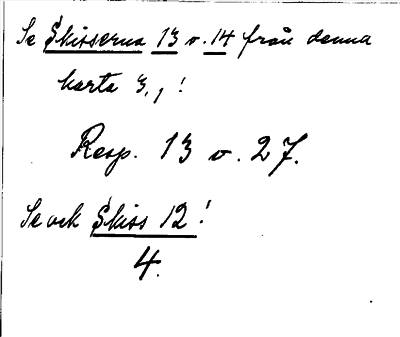 Se Skisserna 13 o. 14 från denna
karta 3,, !
Resp. 13 o. 27.
Se ock Skiss 12 !
4.